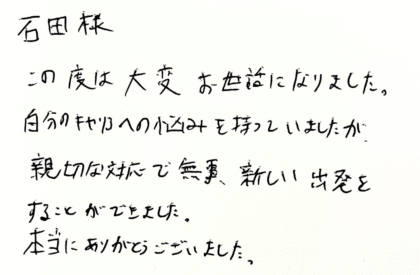 石田様
この度は大変お世話になりました。
自分のキャリアへの悩みを持っていましたが、
親切な対応で無事、新しい出発を
することができました。
本当にありがとうございました。